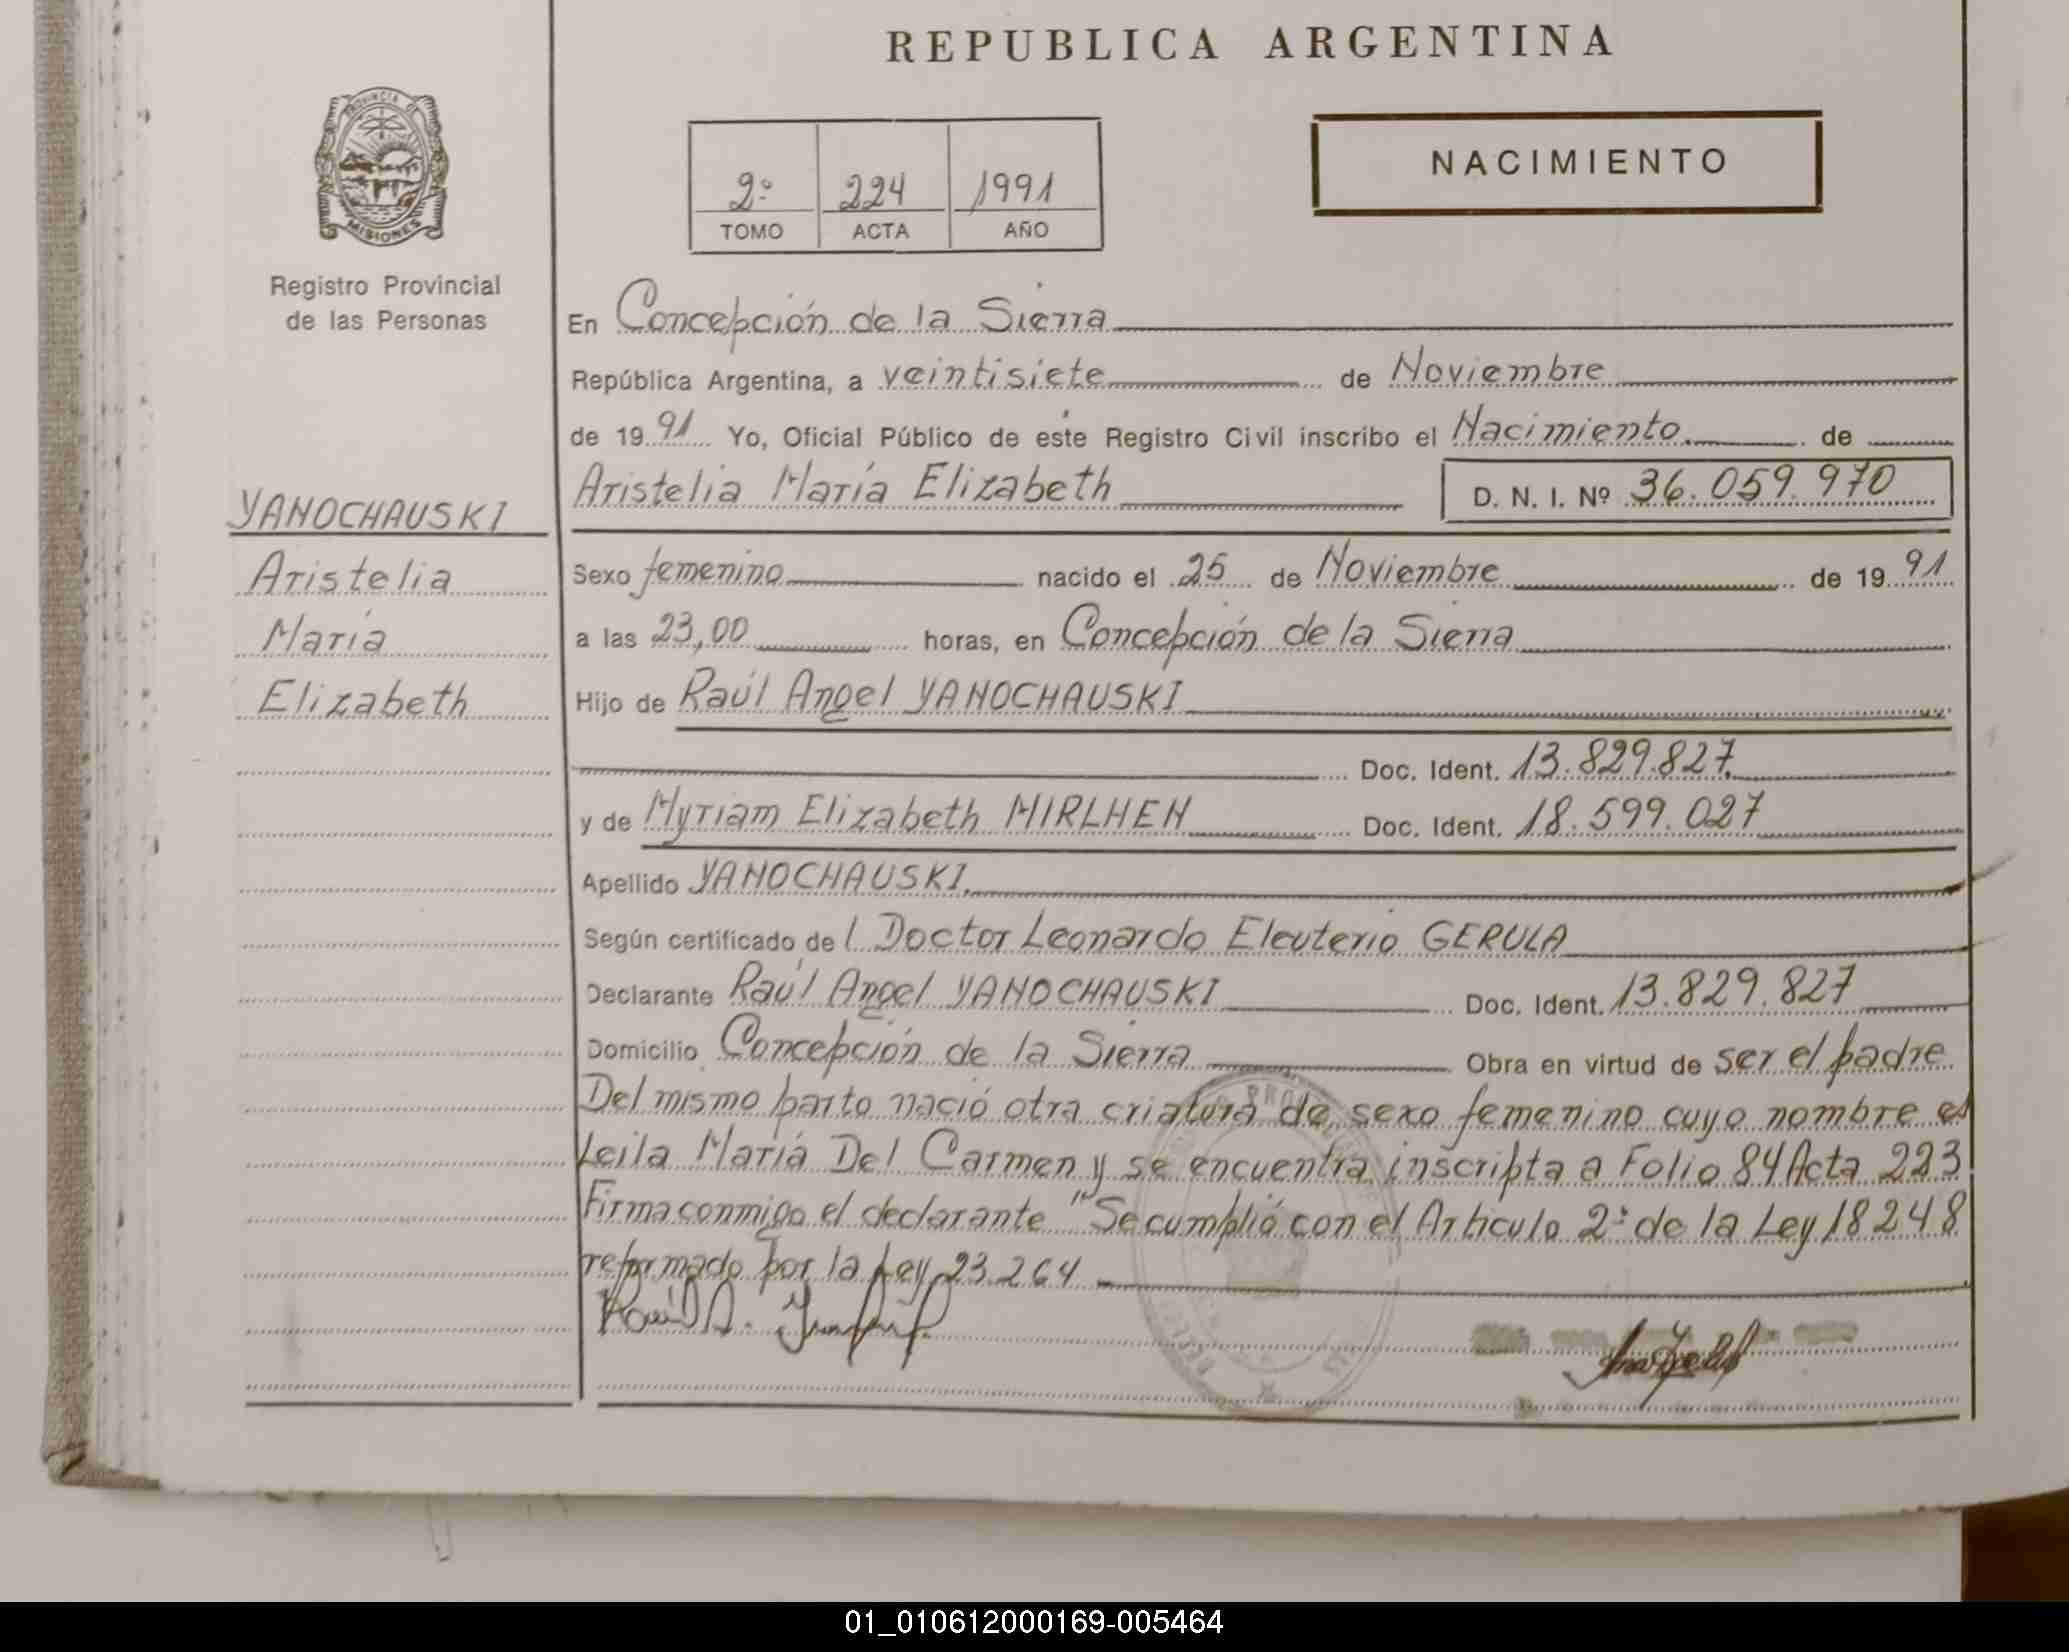 REPUBLICA ARGENTINA
PROVINCIA DE
MISIONES
Registro Provincial
de las Personas
2º 224 1991
TOMO ACTA AÑO
NACIMIENTO
En Concepción de la Sierra
República Argentina, a veintisiete de Noviembre
de 1991 Yo, Oficial Público de este Registro Civil inscribo el Nacimiento de
Aristelia María Elizabeth D. N. I. Nº 36.059.970
YANOCHAUSKI
Aristelia
María
Elizabeth
Sexo femenino nacido el 25 de Noviembre de 1991
a las 23,00 horas, en Concepción de la Sierra
Hijo de Raúl Angel YANOCHAUSKI
Doc. Ident. 13.829.827
y de Myriam Elizabeth MIRLHEN Doc. Ident. 18.599.027
Apellido YANOCHAUSKI
Según certificado del Doctor Leonardo Eleuterio GERULA
Declarante Raúl Angel YANOCHAUSKI Doc. Ident. 13.829.827
Domicilio Concepción de la Sierra Obra en virtud de ser el padre
Del mismo parto nació otra criatura de sexo femenino cuyo nombre es
Leila María Del Carmen y se encuentra inscripta a Folio 84 Acta 223
Firma conmigo el declarante "Se cumplió con el Articulo 2º de la Ley 18248
reformado por la Ley 23.264
01_010612000169-005464